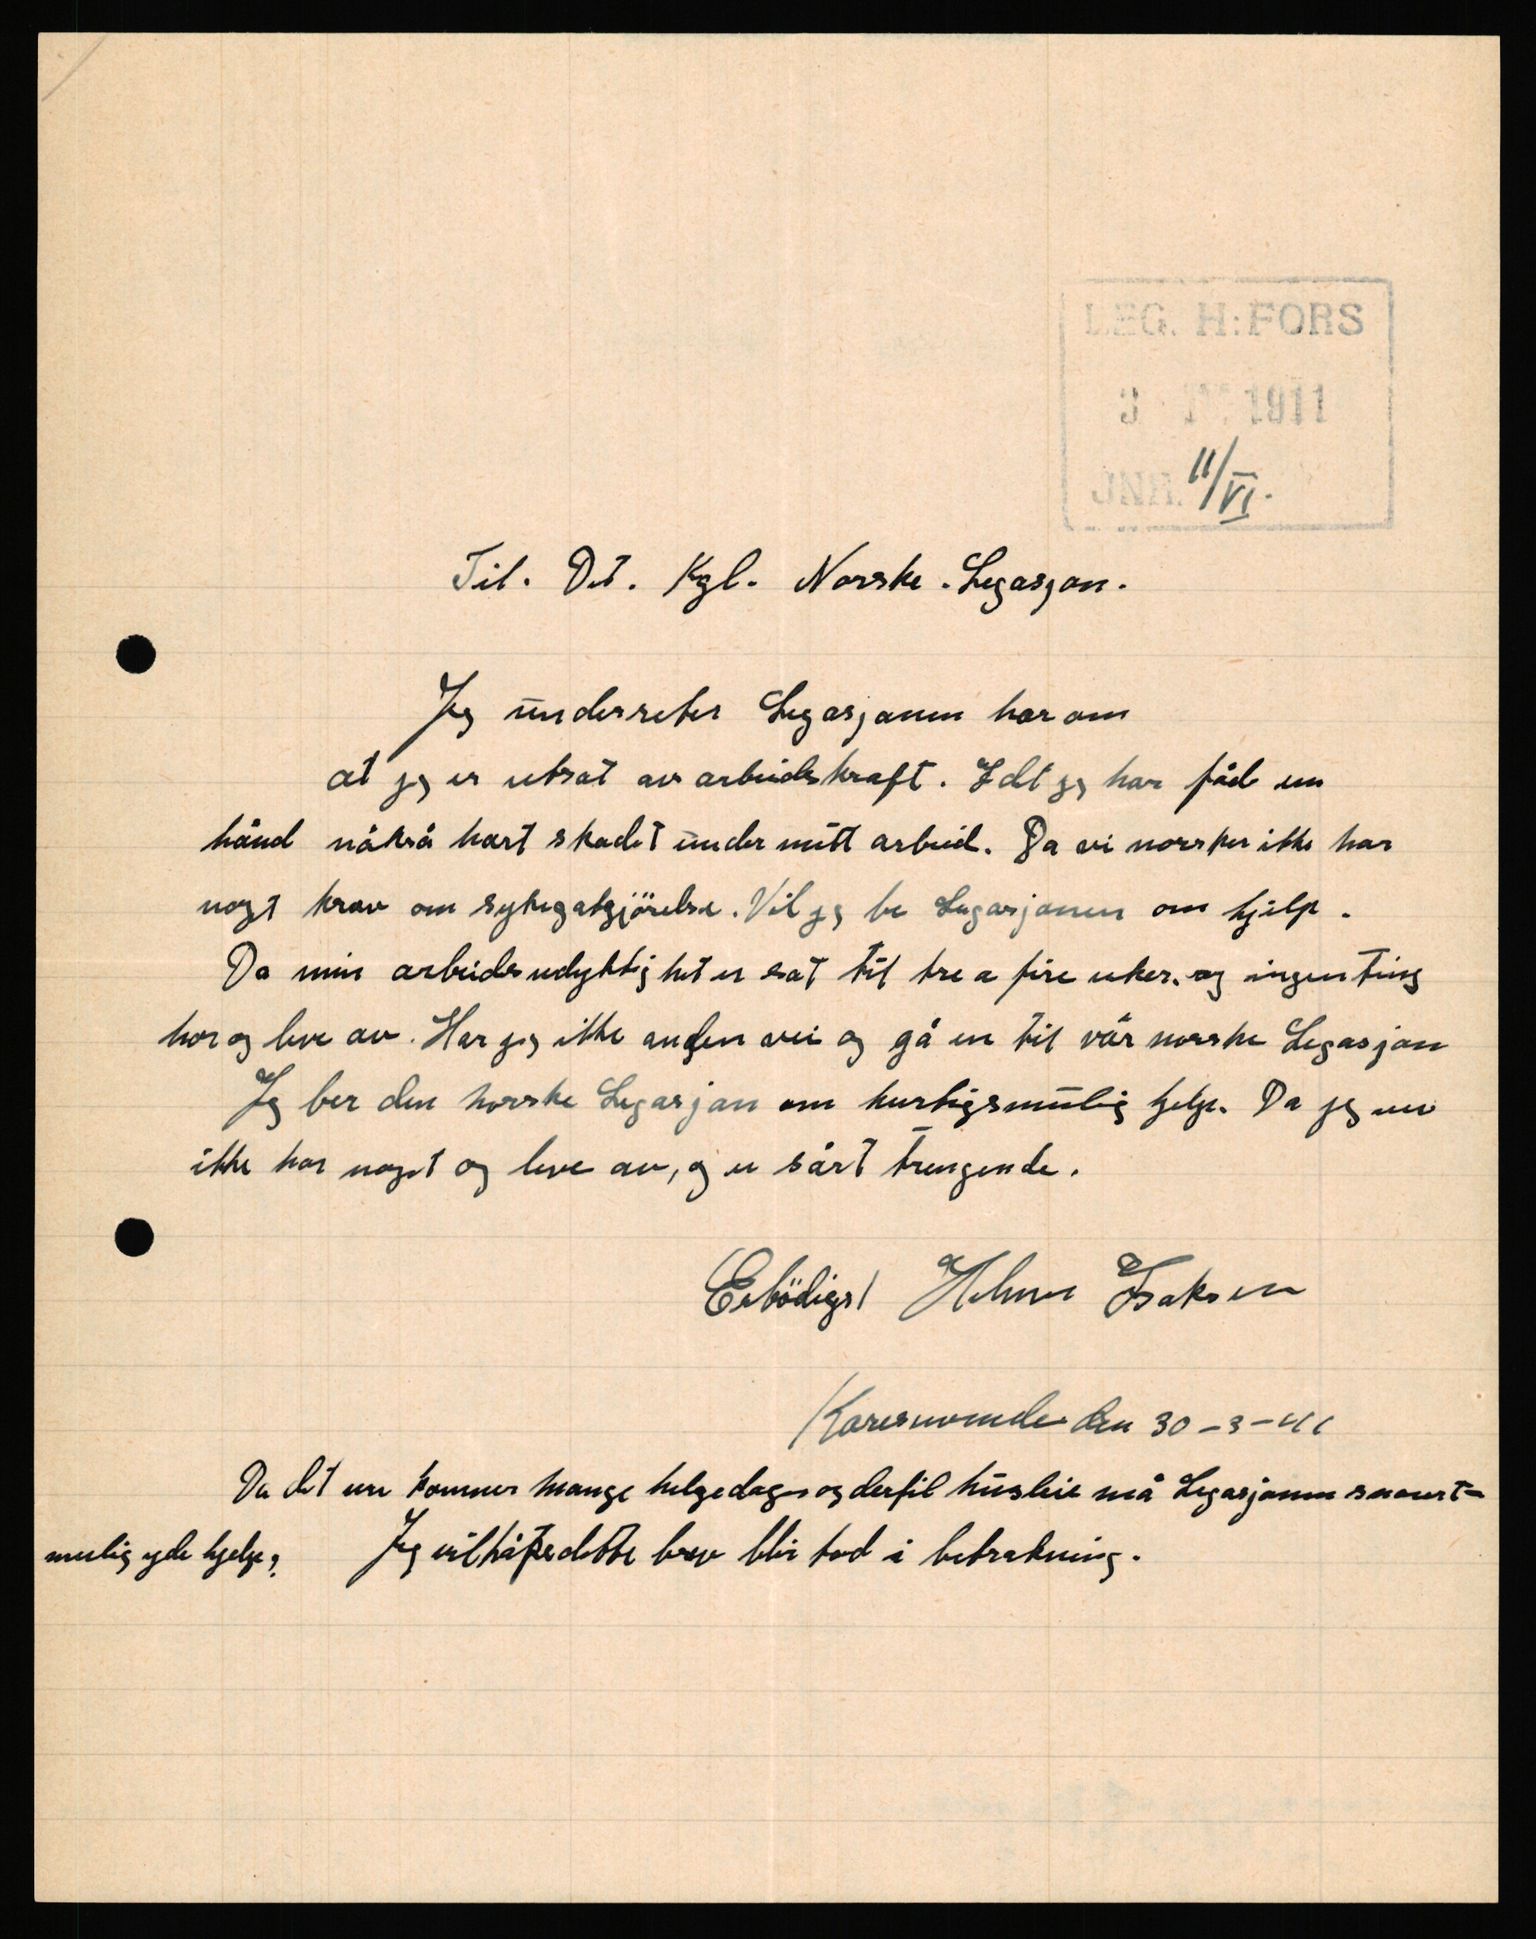 LEG. H:FORS
3 IV. 1941
JNR. 11/VI.
Til. Det. Kgl. Norske. Legasjon.
Jeg underreter Legasjonen har om
at jeg er utsat av arbeidskraft. Idet jeg har fåd en
hånd nåkså hart skadet under mitt arbeid. Da vi norsker ikke har
nogt krav om sykegatgjörelse. Vil jeg be Legasjonen om hjelp.
Da min arbeidsudyktighet er sat til tre a fire uker. og ingenting
har og leve av. Har jeg ikke anden vei og gå en til vår norske Legasjon
Jeg ber den norske Legasjon om hurtigsmulig hjelp. Da jeg nu
ikke har noget og leve av, og er sårt trengende.
Erbödigst Helmer Isaksen
Karesuvando den 30-3-41
Da det nu kommer mange helgedager og dertil husleie må Legasjonen snarest=
mulig yde hjelp, Jeg vil håpe dette brev blir tad i betrakning.